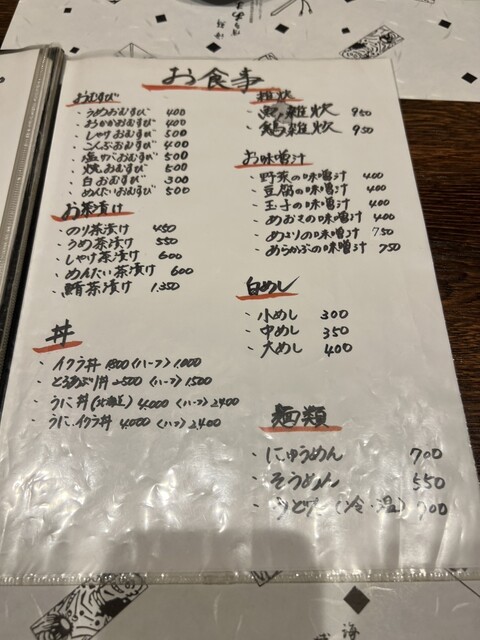 お食事
おむすび
・うめおむすび 400
・おかかおむすび 400
・しゃけおむすび 500
・こんぶおむすび 400
・塩サバおむすび 500
・焼おむすび 500
・白おむすび 300
・めんたいおむすび 500
お茶漬け
・のり茶漬け 450
・うめ茶漬け 550
・しゃけ茶漬け 600
・めんたい茶漬け 600
・鯖茶漬け 1.350
丼
・イクラ丼 1800(ハーフ)1.000
・とろあぶり丼 2500(ハーフ)1500
・うに丼(北海道)4,000(ハーフ)2400
・うに、イクラ丼 4,000(ハーフ)2400
雑炊
・魚雑炊 950
・鶏雑炊 950
お味噌汁
・野菜の味噌汁 400
・豆腐の味噌汁 400
・玉子の味噌汁 400
・あおさの味噌汁 400
・めぶりの味噌汁 750
・あらかぶの味噌汁 750
白めし
・小めし 300
・中めし 350
・大めし 400
麺類
・にゅうめん 700
・そうめん 550
・うどん(冷・温) 700